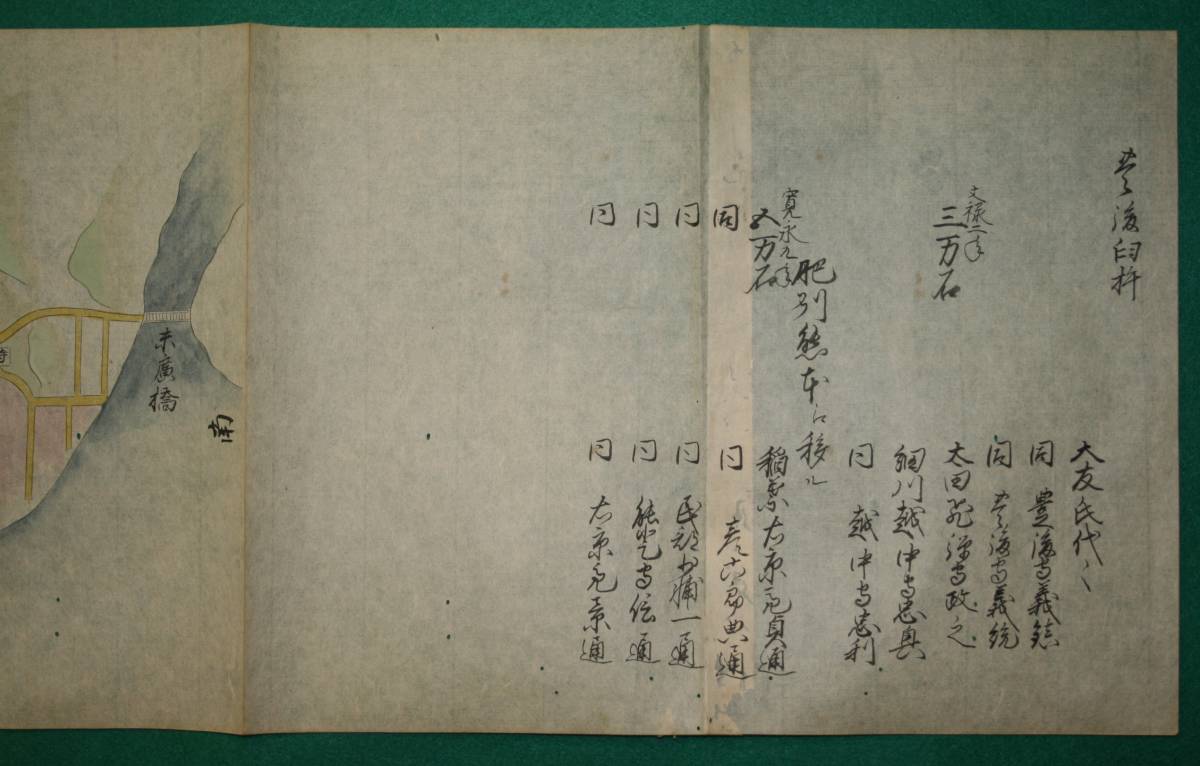 豊後臼杵
大友氏代々
同 豊後守義鎮
同 豊後守義統
文禄二年
三万石 太田飛弾守政之
細川越中守忠興
同 越中守忠利
肥列熊本江移ル
寛永九年
五万石 稲葉右京亮貞通
同 同 彦六郎典通
同 同 民部少輔一通
同 同 能登守信通
同 同 右京亮景通
南
末廣橋
寺